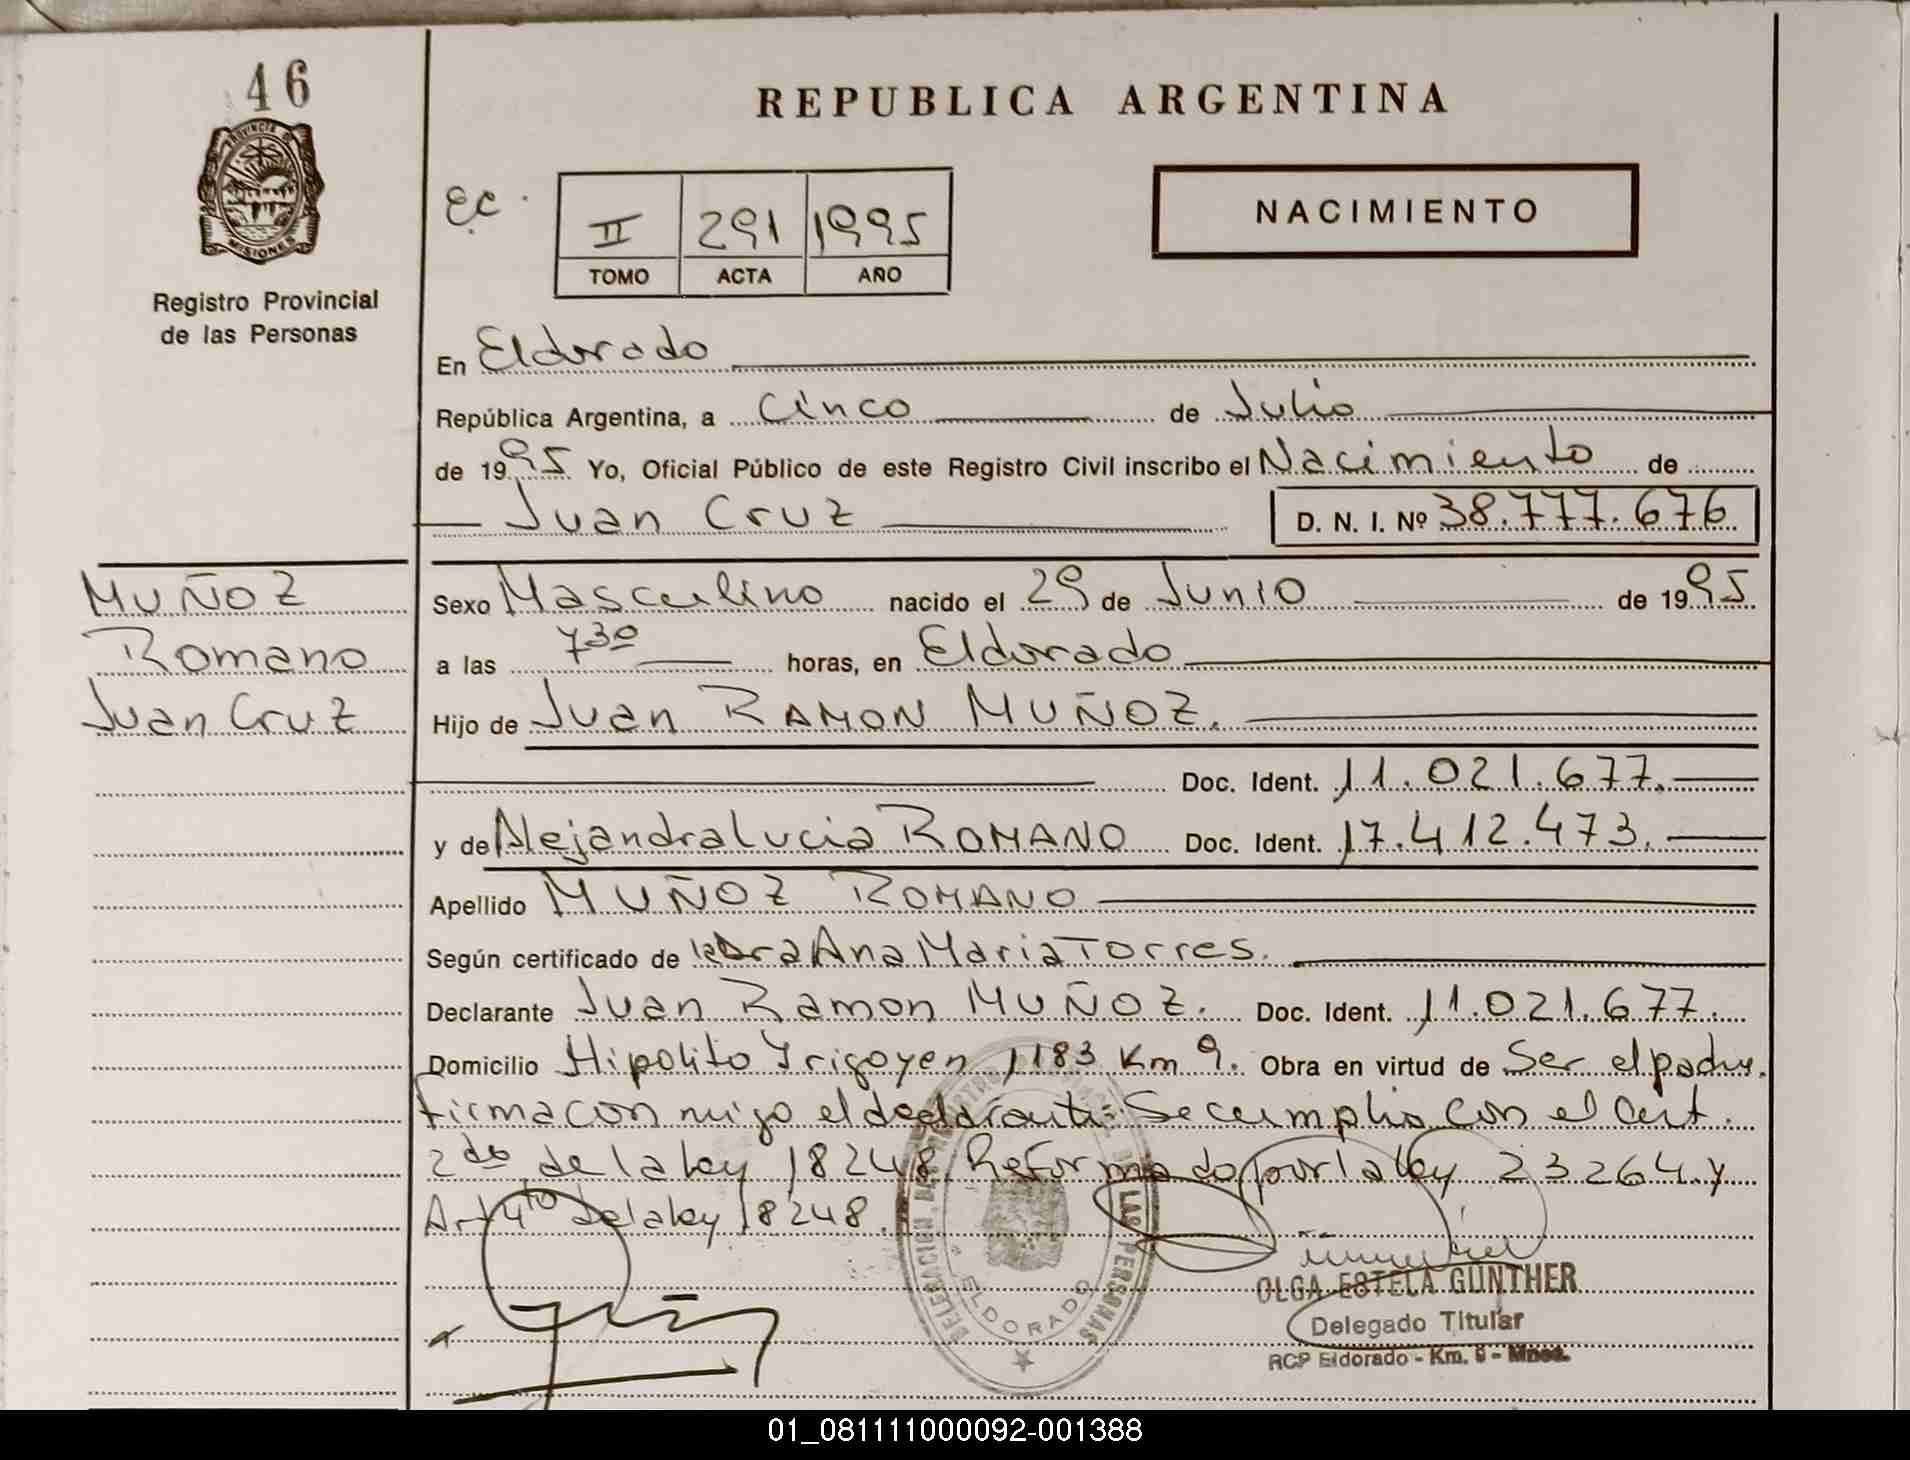 46
PROVINCIA DE
MISIONES
Registro Provincial
de las Personas
REPUBLICA ARGENTINA
E.C.
II 291 1995
TOMO ACTA AÑO
NACIMIENTO
En Eldorado
República Argentina, a Cinco de Julio
de 1995 Yo, Oficial Público de este Registro Civil inscribo el Nacimiento de
Juan Cruz D. N. I. Nº 38.777.676
MUÑOZ
Romano
Juan Cruz
Sexo Masculino nacido el 29 de Junio de 1995
a las 7 30 horas, en Eldorado
Hijo de Juan RAMON MUÑOZ.
Doc. Ident. 11.021.677.
y de Alejandra Lucia ROMANO Doc. Ident. 17.412.473.
Apellido MUÑOZ ROMANO
Según certificado de la Dra Ana Maria Torres.
Declarante Juan Ramon MUÑOZ. Doc. Ident. 11.021.677.
Domicilio Hipolito Yrigoyen 1183 Km 9. Obra en virtud de Ser el padre.
Firma con migo el declarante= Se cumplio con el Art.
2do de la ley 18248 Reformado por la ley 23264 y
Art 4to de la ley 18248.
DELEGACION DEL REGISTRO PROVINCIAL DE LAS PERSONAS
ELDORADO
OLGA ESTELA GUNTHER
Delegado Titular
RCP Eldorado - Km. 9 - Mnes.
01_081111000092-001388